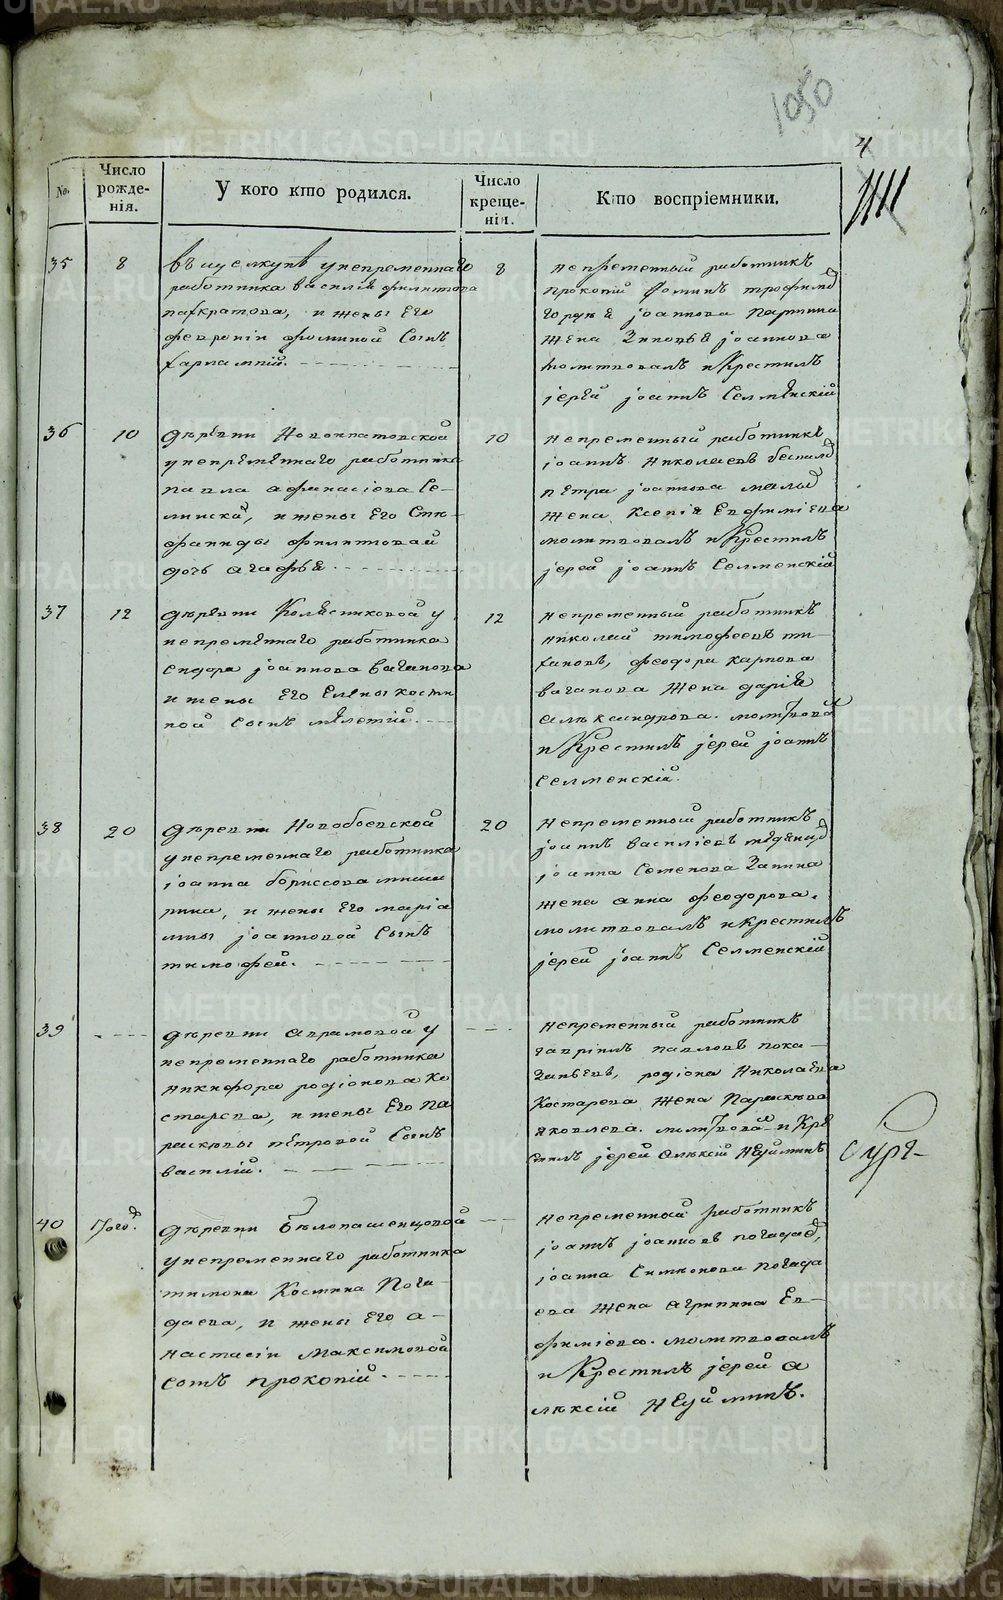 1050
4
№.
Число рожде-нія.
У кого кто родился.
Число креще-нія.
Кто воспріемники.
35
8
въ
у непременнаго
работника василія филипова
панкратова, и жены его
февроніи фоминой сынъ
харлампій.
8
непременный работникъ
прокопій фоминъ
жена зиновья іоаннова
молитвовалъ и крестилъ
іерей іоаннъ Селменскій
36
10
деревни Новоипатовской
у непременнаго работника
павла афанасіева Се-
и жены его Сте-
фаниды филиповай
дочь агафья
10
непременный работникъ
іоаннъ николаевъ
петра іоаннова
жена ксенія Евфиміева
молитвовалъ и крестилъ
іерей іоаннъ Селменскій
37
12
деревни Колясниковой у
непременнаго работника
сидора іоаннова ваганова
и жены его Елены кости
ной сынъ мелетій.
12
непременный работникъ
николай тимофеевъ ти-
хановъ, феодора карпова
ваганова жена дарія
александрова.
и крестилъ іерей іоаннъ
Селменскій.
38
20
деревни Новобоевской
у непременнаго работника
іоанна бориссова
и жены его маріа
мны іоанновой сынъ
тимофей.
20
непременный работникъ
іоаннъ василіевъ
іоанна Семенова Занина
жена анна феодорова.
молитвовалъ и крестилъ
іерей іоаннъ Селменскій
39
деревни аврамовой у
непременнаго работника
никифора родіонова ко
старева, и жены его па
расковьи петровой сынъ
василій.
непременный работникъ
гавріилъ павловъ пока-
родіона николаева
костарева жена параскева
яковлева. и кре
стилъ іерей алексій неуйминъ
40
деревни Белопашенцовой
у непременнаго работника
тимона костина пога-
даева, и жены его а-
настасіи максимовой
сынъ прокопій.
непременный работникъ
іоаннъ іоанновъ
іоанна Симеонова погада
ева жена агрипина Ев-
фиміева. молитвовалъ
и крестилъ іерей а
лексій неуйминъ.
METRIKI.GASO-URAL.RU